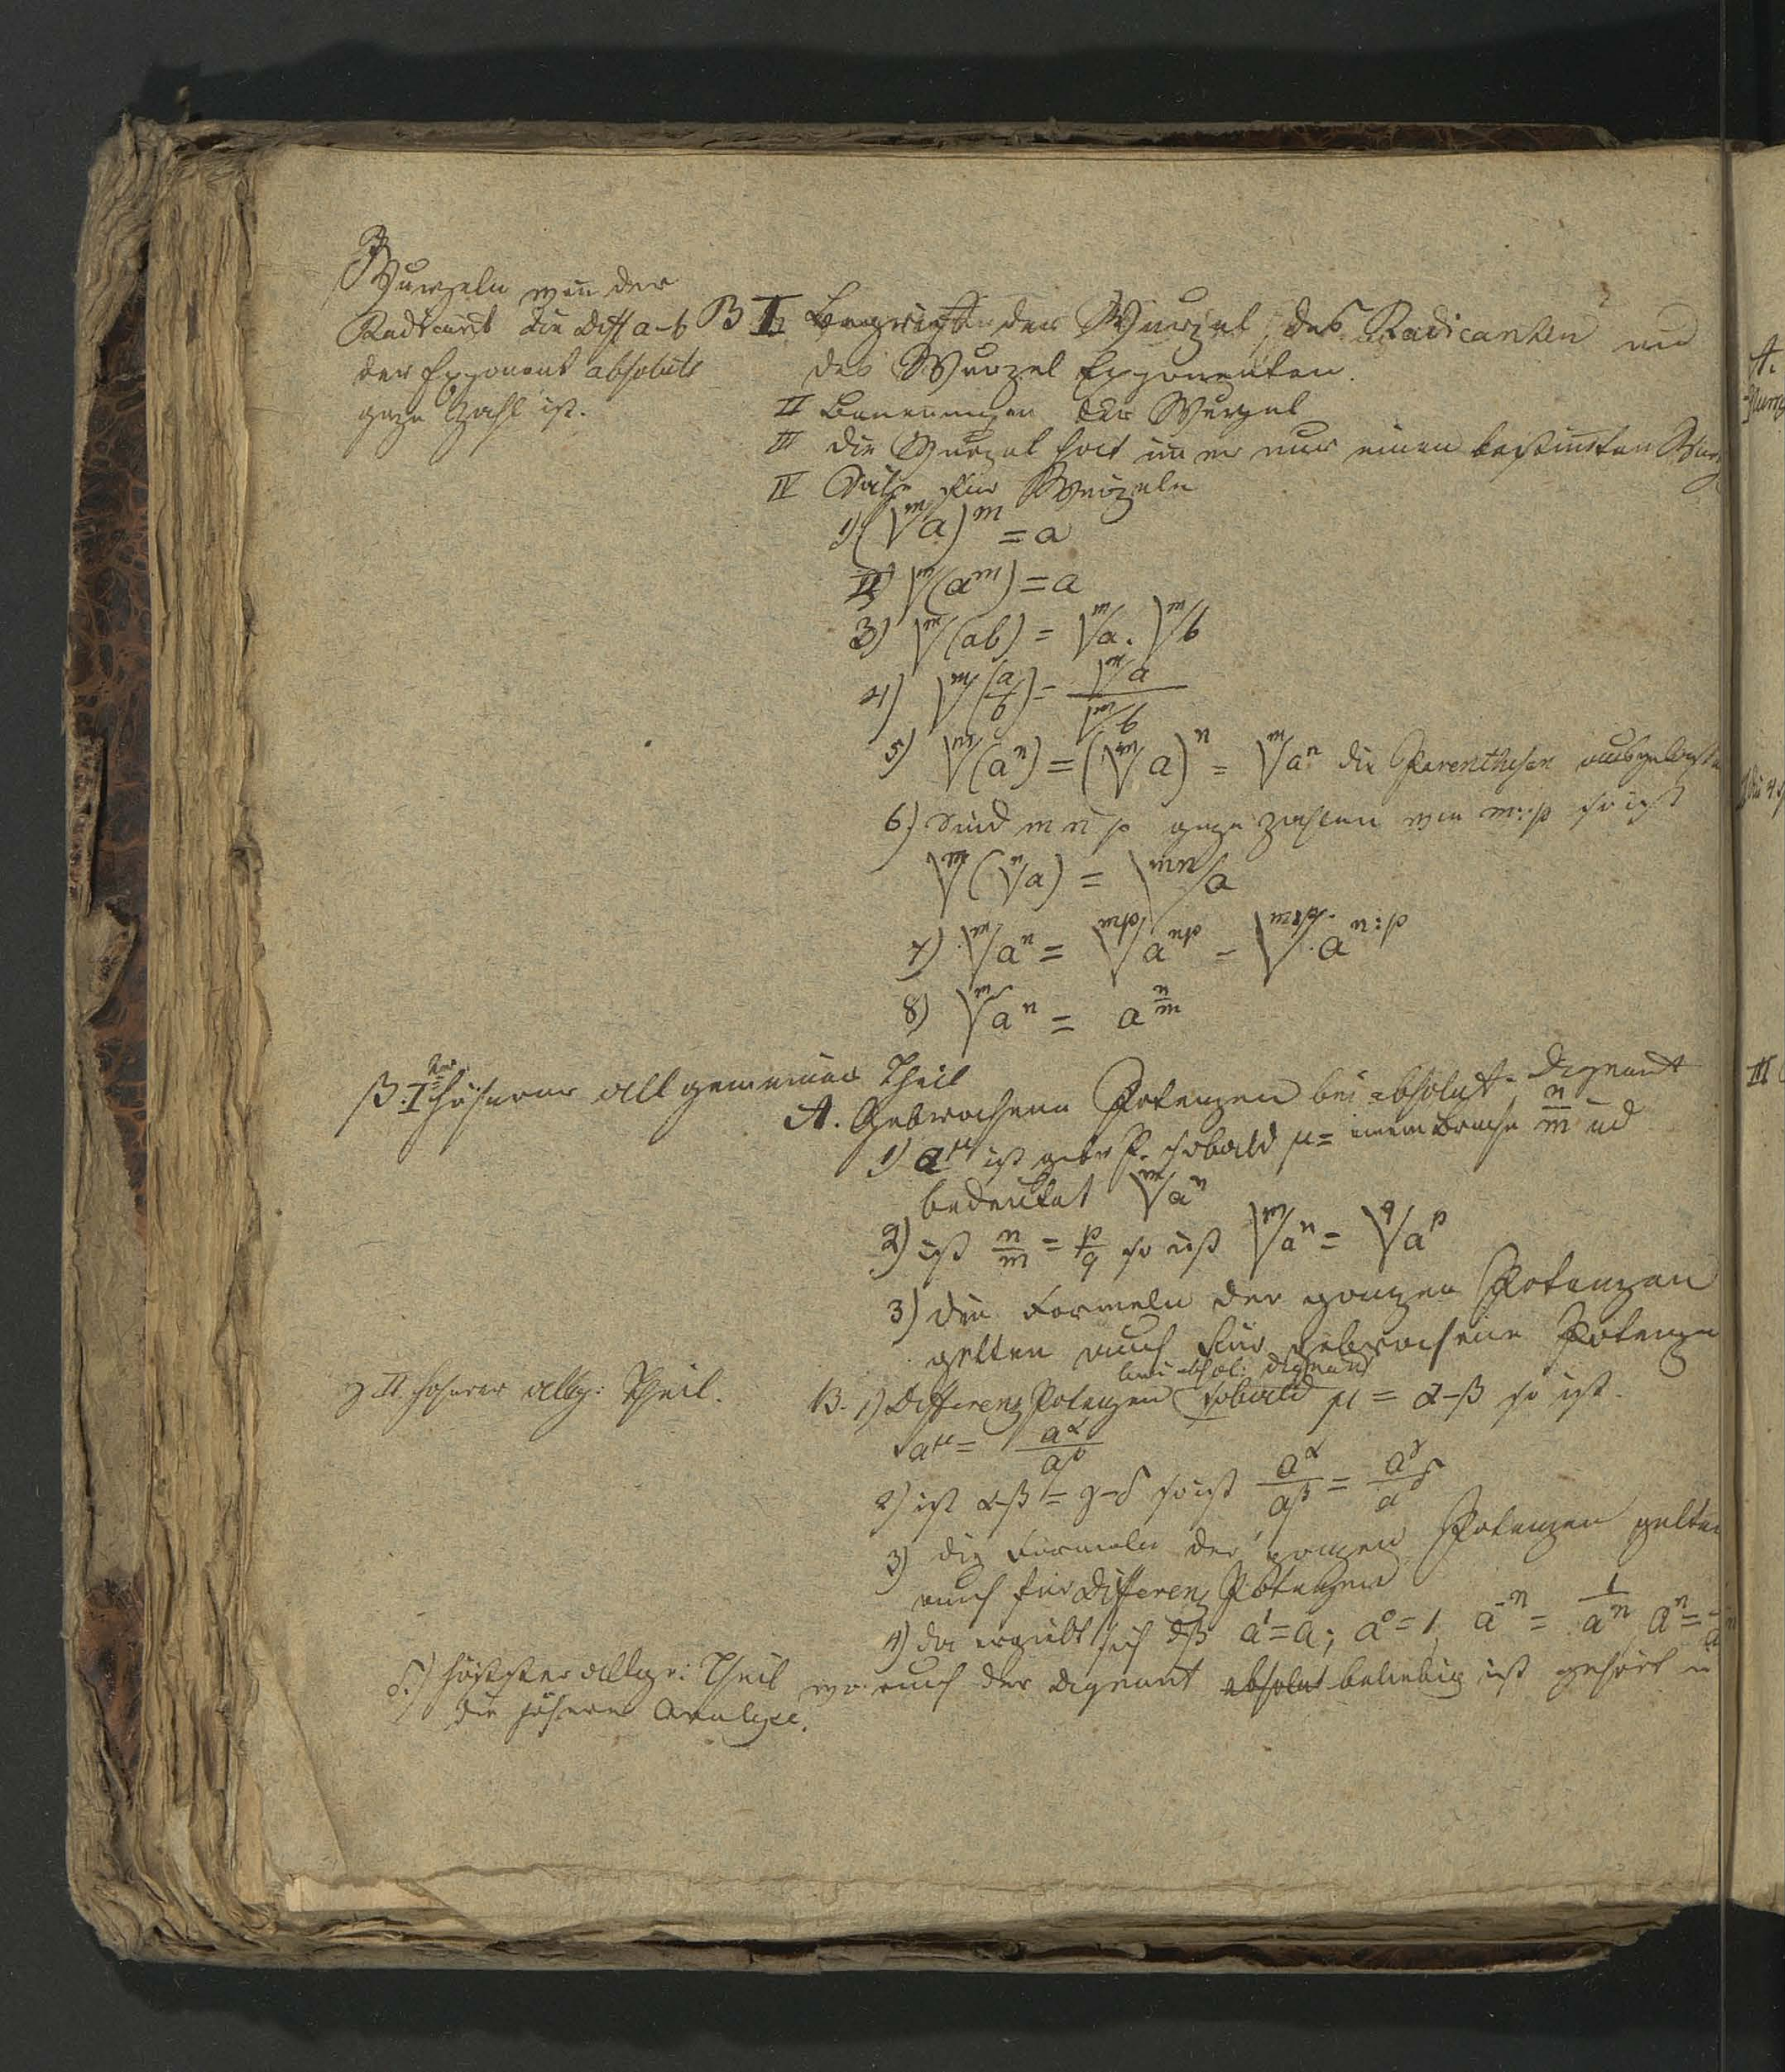 B
Wurzeln wen̄ der
Radicant die Diff a-b
der Exponent absolute
ganze Zahl ist.
B I Begriff der Wurzel, des Radicanten und
des Wurzel Exponenten.
II Benennungen der Wurzel
III die Wurzel hat im̄er nur einen bestim̄ten Wert
IV Sätze für Wurzeln
1) (\sqrt[m]{a})^m = a
2) \sqrt[m]{(a^m)} = a
3) \sqrt[m]{(ab)} = \sqrt[m]{a} . \sqrt[m]{b}
4) \sqrt[m]{(\frac{a}{b})} = \frac{\sqrt[m]{a}}{\sqrt[m]{b}}
5) \sqrt[m]{(a^n)} = (\sqrt[m]{a})^n = \sqrt[m]{a^n} die Parenthesen
6.) Sind m n p ganze Zahlen m:p so ist
\sqrt[m]{(\sqrt[n]{a})} = \sqrt[mn]{a}
7) \sqrt[m]{a^n} = \sqrt[mp]{a^{np}} = \sqrt[m:p]{a^{n:p}}
8) \sqrt[m]{a^n} = a^{\frac{n}{m}}
β. I^{ter} höherer allgemeiner Theil
A. Gebrochene Potenzen bei absolut. Dignand
1) a^μ ist gebr P. sobald μ = einem Bruche \frac{n}{m} ud
bedeutet \sqrt[m]{a^n}
2) ist \frac{n}{m} = \frac{p}{q} so ist \sqrt[m]{a^n} = \sqrt[q]{a^p}
3) die Formeln der ganzen Potenzen
gelten auch für gebrochene Potenze
γ II. höherer allg: Theil.
bei absol: Dignand
B. 1) Differenz Potenzen sobald μ = α-β so ist.
a^μ = \frac{a^α}{a^β}
2) ist α-β = γ-δ so ist \frac{a^α}{a^β} = \frac{a^γ}{a^δ}
3) die Formeln der ganzen Potenzen gelten
auch für Differenz Potenzen
4) da ergibt sich dß a^1 = a; a^0 = 1, a^{-n} = \frac{1}{a^n} a^n =
δ.) höchster allge: Theil wo auch der Dignand absolut beliebig ist gehört in
die höhere Analyse.